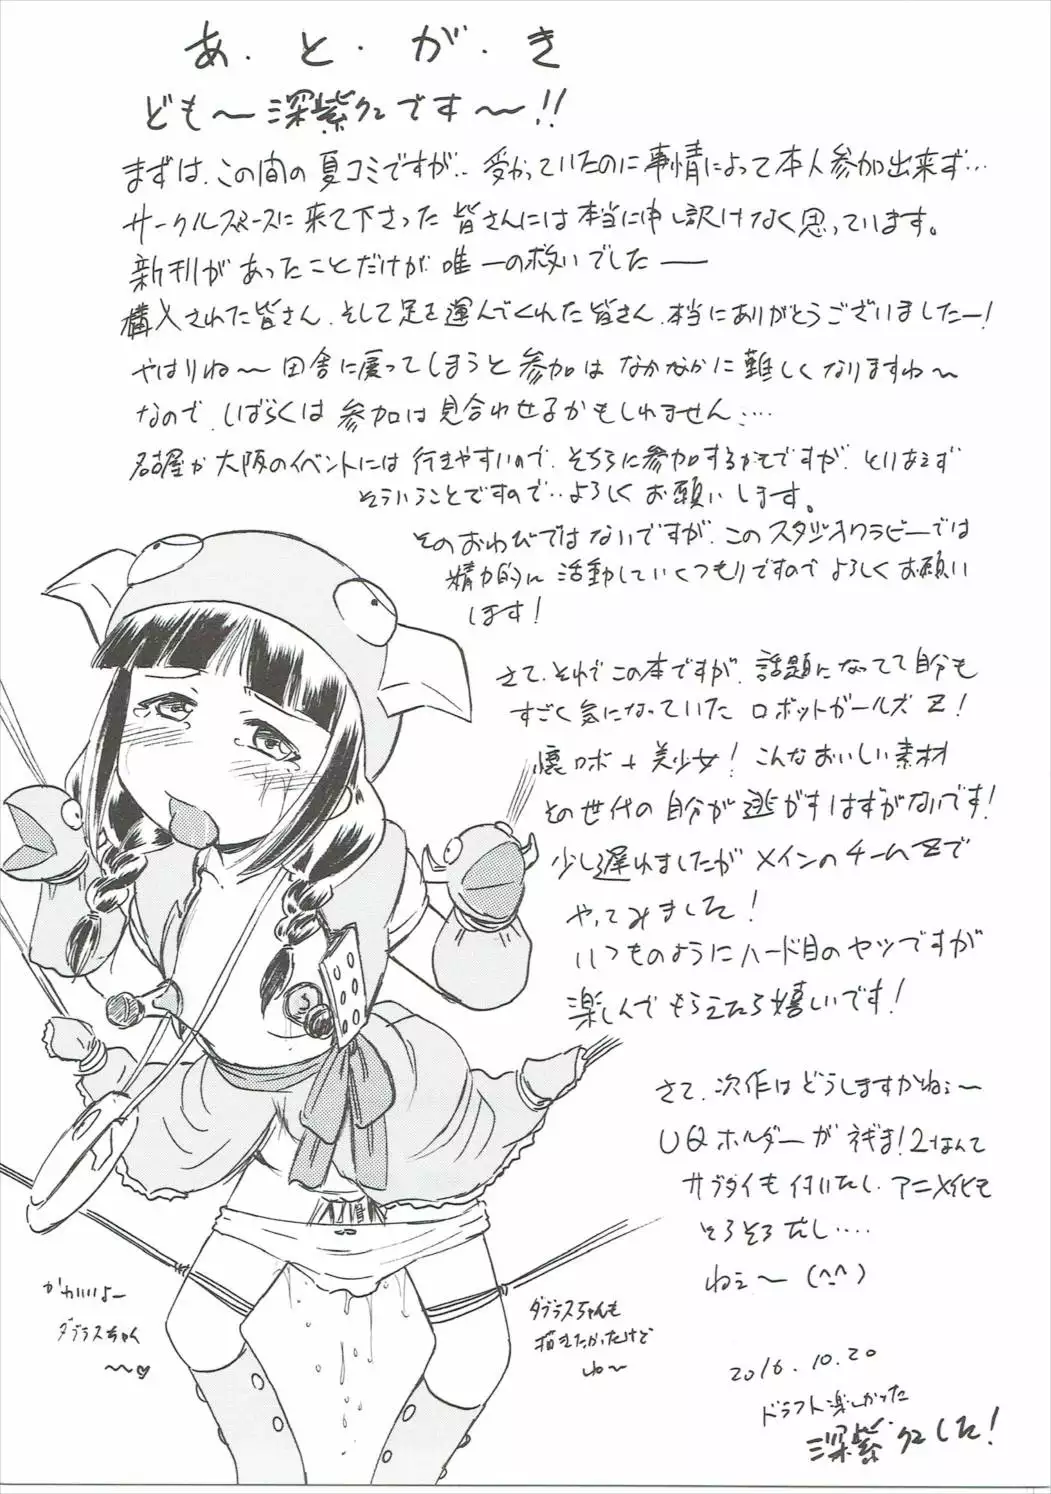 あ・と・が・き
ども～深紫です～!!
まずは、この間の夏コミですが‥受かっていたのに事情によって本人参加出来ず…
サークルスペースに来て下さった皆さんには本当に申し訳けなく思っています。
新刊があったことだけが唯一の救いでした――
構入された皆さん、そして足を運んでくれた皆さん、本当にありがとうございましたー!
やはりね～田舎に戻ってしまうと参加はなかなかに難しくなりますね～
なので、しばらくは参加は見合わせるかもしれません‥‥
名古屋か大阪のイベントには行きやすいので、そちらに参加するかもですが、とりあえず
そういうことですので‥よろしくお願いします。
そのおわびではないですが、このスタジオクラビーでは
精力的に活動していくつもりですのでよろしくお願い
します!
さて、それでこの本ですが、話題になってて自分も
すごく気になっていたロボットガールズZ!
懐ロボ+美少女!こんなおいしい素材
その世代の自分が逃がすはずがないです!
少し遅れましたがメインのチームZで
やってみました!
いつものようにハード目のヤツですが
楽しんでもらえたら嬉しいです!
さて、次作はどうしますかねぇ～
UQホルダーがネギま!2なんて
サブタイも付いたし、アニメ化も
そろそろだし‥‥
ねぇ～(^-^)
かわいいよー
ダブラスちゃん
～～♡
ダブラスちゃんも
描きたかったけど
ね～
2016.10.20
ドラフト楽しかった
深紫でした!